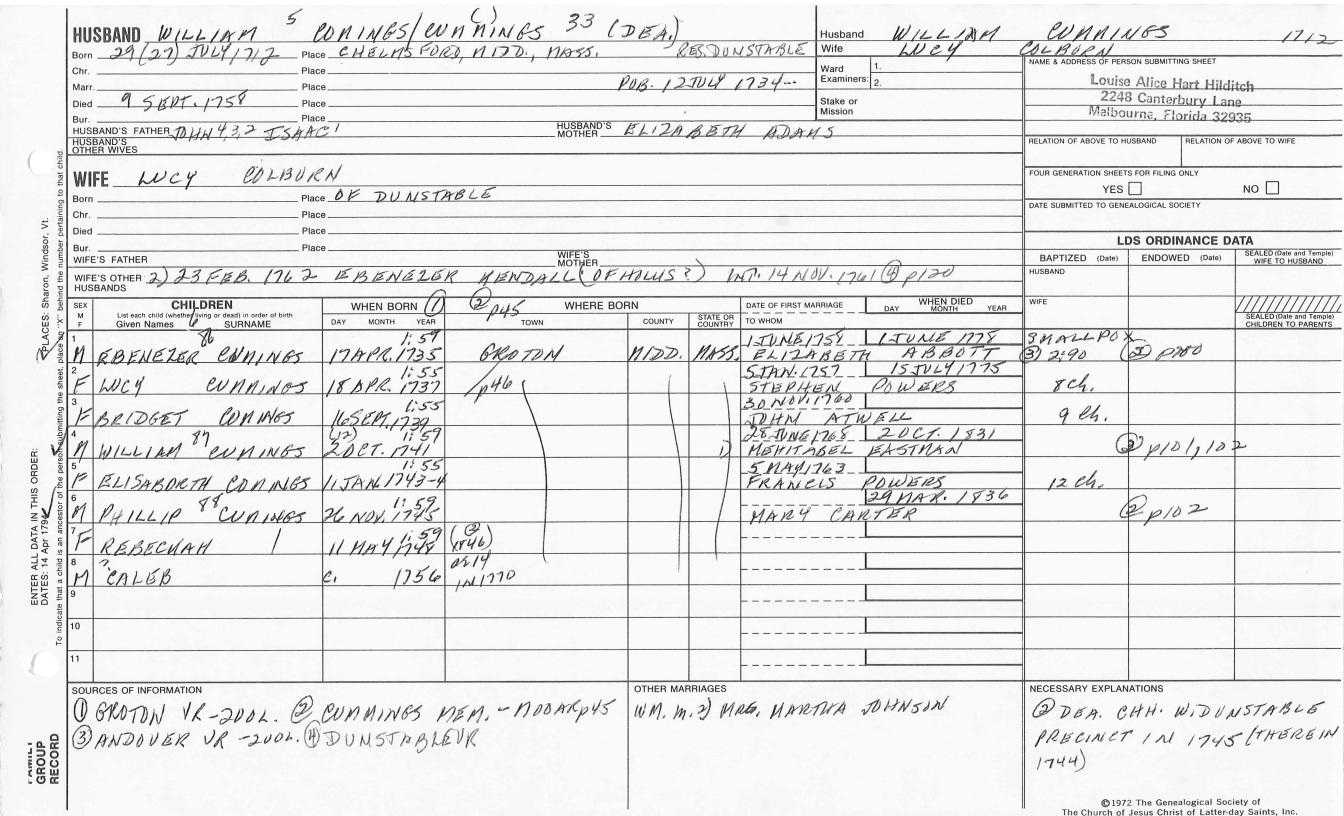 HUSBAND WILLIAM 5 COMINGS/CUMMINGS 33 (DEA.)
Born 29(27) JULY 1712 Place CHELMSFORD, MIDD., MASS. RES. DUNSTABLE
Chr. Place
Marr. Place PUB. 12 JULY 1734--
Died 9 SEPT. 1758 Place
Bur. Place
HUSBAND'S FATHER JOHN 4,3,2 ISAAC 1 HUSBAND'S MOTHER ELIZABETH ADAMS
HUSBAND'S OTHER WIVES
WIFE LUCY COLBURN
Born Place OF DUNSTABLE
Chr. Place
Died Place
Bur. Place
WIFE'S FATHER WIFE'S MOTHER
WIFE'S OTHER HUSBANDS 2) 23 FEB. 1762 EBENEZER KENDALL (OF HOLLIS?) INT. 14 NOV. 1761 ④ p120
Husband WILLIAM CUMMINGS 1712
Wife LUCY COLBURN
Ward Examiners: 1.
2.
Stake or Mission
NAME & ADDRESS OF PERSON SUBMITTING SHEET
Louise Alice Hart Hilditch
2248 Canterbury Lane
Melbourne, Florida 32935
RELATION OF ABOVE TO HUSBAND RELATION OF ABOVE TO WIFE
FOUR GENERATION SHEETS FOR FILING ONLY
YES NO
DATE SUBMITTED TO GENEALOGICAL SOCIETY
LDS ORDINANCE DATA
BAPTIZED (Date) ENDOWED (Date) SEALED (Date and Temple) WIFE TO HUSBAND
HUSBAND
WIFE
SEALED (Date and Temple) CHILDREN TO PARENTS
SEX M F CHILDREN WHEN BORN ① ② p45 WHERE BORN DATE OF FIRST MARRIAGE WHEN DIED
List each child (whether living or dead) in order of birth
Given Names 6 SURNAME DAY MONTH YEAR TOWN COUNTY STATE OR COUNTRY TO WHOM DAY MONTH YEAR
1 86 1:59 1 JUNE 1758 1 JUNE 1778 SMALLPOX
M EBENEZER CUMINGS 17 APR. 1735 GROTON MIDD. MASS. ELIZABETH ABBOTT ③ 2:90 p100
2 1:55 5 JAN. 1757 15 JULY 1775
F LUCY CUMMINGS 18 APR. 1737 p46 STEPHEN POWERS 8 ch.
3 1:55 30 NOV. 1760
F BRIDGET COMINGS 16 SEPT. 1739 JOHN ATWELL 9 ch.
4 87 (12) 1:59 28 JUNE 1768 2 OCT. 1831
M WILLIAM CUMMINGS 2 OCT. 1741 MEHITABEL EASTMAN ② p101, 102
5 1:55 5 MAY 1763
F ELISABORTH COMINGS 11 JAN. 1743-4 FRANCIS POWERS 12 ch.
6 88 1:59 29 MAR. 1836
M PHILLIP CUMINGS 26 NOV. 1745 MARY CARTER ② p102
7 1:59 (② p46)
F REBECKAH 11 MAY 1748
8 ? ae 14
M CALEB c. 1756 IN 1770
9
10
11
SOURCES OF INFORMATION
① GROTON VR -200L. ② CUMMINGS MEM. - MOOAR p45
③ ANDOVER VR -200L. ④ DUNSTABLE VR
OTHER MARRIAGES
WM. m. 2) MRS. MARTHA JOHNSON
NECESSARY EXPLANATIONS
② DEA. CHH. W. DUNSTABLE
PRECINCT IN 1745 (THEREIN
1744)
©1972 The Genealogical Society of
The Church of Jesus Christ of Latter-day Saints, Inc.
ENTER ALL DATA IN THIS ORDER:
DATES: 14 Apr 1794
PLACES: Sharon, Windsor, Vt.
To indicate that a child is an ancestor of the person submitting the sheet, place an "X" behind the number pertaining to that child.
FAMILY GROUP RECORD